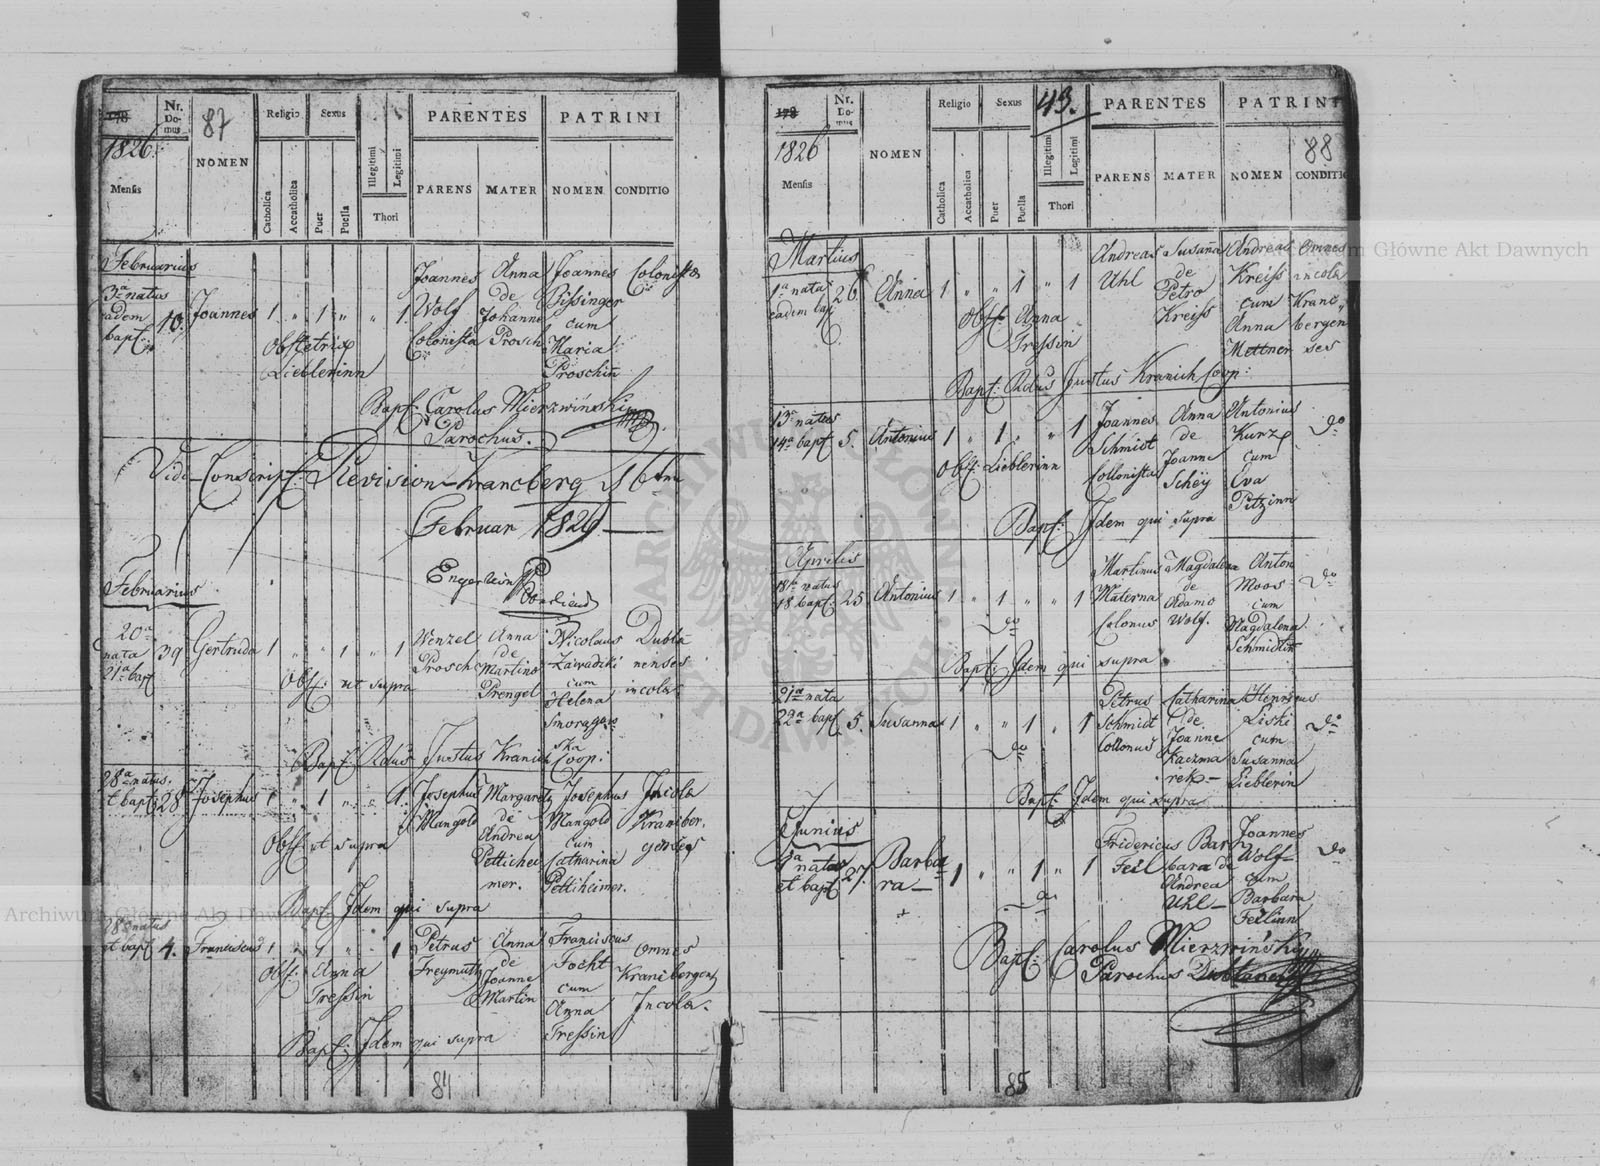 178
1826
Mensis
Nr. Domus
87
NOMEN
Religio
Catholica
Accatholica
Sexus
Puer
Puella
Illegitimi
Legitimi
Thori
PARENTES
PARENS MATER
PATRINI
NOMEN CONDITIO
Februarius
3a natus
eadem
bapt:
10.
Joannes
1 " 1 " " 1
Obstetrix
Lieblerinn
Joannes
Wolf
Colonista
Anna
de
Johanne
Prosch
Joannes
Bissinger
cum
Maria
Proschin
Colonistae
Bapt: Carolus Mierzwiński
Parochus.
Vidi Conscript: Revision Kranzberg 16ten
Februar 1826
Februarius
20a
nata
21a bapt
39
Gertruda
1 " " 1 " 1
Obst: ut supra
Wenzel
Prosch
Anna
de
Martino
Prengel
Nicolaus
Zawadzki
cum
Helena
Smorągow
ska
Dubla
nenses
incolae
Bapt: Rdus Justus Kranich Coop:
28a natus
et bapt:
28
Josephus
1 " 1 " " 1
Obst: ut supra
Josephus
Mangold
Margareth
de
Andrea
Pettichei
mer.
Josephus
Mangold
cum
Catharina
Pettiheimer.
Incolae
Kranzber.
genses
Bapt: Idem qui supra
28 natus
et bapt:
4.
Franciscus
1 " 1 " " 1
Obst: Anna
Tressin
Petrus
Freymuth
Anna
de
Joanne
Martin
Franciscus
Focht
cum
Anna
Tressin
Omnes
Kranzbergens
Incolae.
Bapt: Idem qui supra
84
178
1826
Mensis
Nr. Domus
NOMEN
Religio
Catholica
Accatholica
Sexus
Puer
Puella
43.
Illegitimi
Legitimi
Thori
PARENTES
PARENS MATER
PATRINI
88
NOMEN CONDITIO
Martius
1a nata
eadem bap
26
Anna
1 " " 1 " 1
Obst: Anna
Tressin
Andreas
Uhl
Susana
de
Petro
Kreiss
Andreas
Kreiss
cum
Anna
Mettner
Omnes
incolae
Kranz
bergen
ses
Bapt: Rdus Justus Kranich Coop:
13a natus
14a bapt
5.
Antonius
1 " 1 " " 1
Obst: Lieblerinn
Joannes
Schmidt
Collonista
Anna
de
Joanne
Schey
Antonius
Kurz
cum
Eva
Pitzinn
do
Bapt: Idem qui supra
Aprilis
18a natus
18 bapt:
25
Antonius
1 " 1 " " 1
do
Martinus
Materna
Colonus
Magdalena
de
Adamo
Wolf.
Anton
Moos
cum
Magdalena
Schmidtin
do
Bapt: Idem qui supra
21a nata
22a bapt
5.
Susanna
1 " " 1 " 1
do
Petrus
Schmidt
Collonus
Catharina
de
Joanne
Kaczma
rek
Henricus
Liski
cum
Susanna
Lieblerin
do
Bapt: Idem qui supra
Junius
nata
et bapt
27.
Barba
ra
1 " " 1 " 1
do
Fridericus
Feil
Bar
bara de
Andrea
Uhl
Joannes
Wolf
cum
Barbara
Feilinn
do
Bapt: Carolus Mierzwiński
Parochus Dublanensis
85
Archiwum Główne Akt Dawnych
Archiwum Główne Akt Dawnych
ARCHIWUM GŁÓWNE AKT DAWNYCH